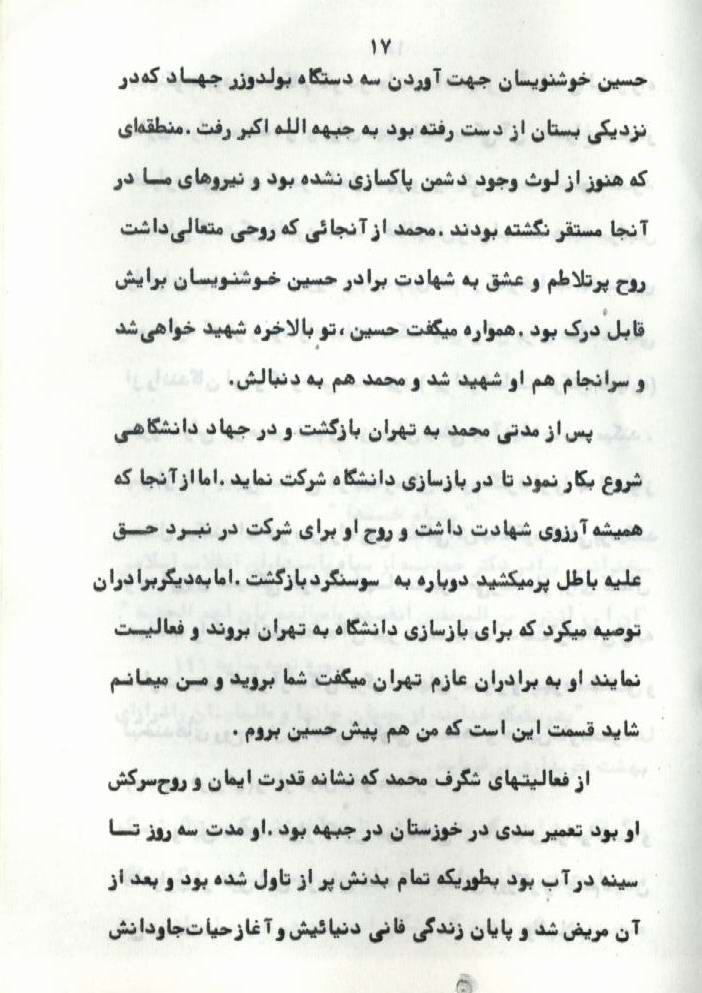 ۱۷
حسین خوشنویسان جهت آوردن سه دستگاه بولدوزر جهاد که در
نزدیکی بستان از دست رفته بود به جبهه الله اکبر رفت .منطقه‌ای
که هنوز از لوث وجود دشمن پاکسازی نشده بود و نیروهای ما در
آنجا مستقر نگشته بودند .محمد از آنجائی که روحی متعالی داشت
روح پرتلاطم و عشق به شهادت برادر حسین خوشنویسان برایش
قابل درک بود .همواره میگفت حسین ،تو بالاخره شهید خواهی شد
و سرانجام هم او شهید شد و محمد هم به دنبالش.
پس از مدتی محمد به تهران بازگشت و در جهاد دانشگاهی
شروع بکار نمود تا در بازسازی دانشگاه شرکت نماید .اما از آنجا که
همیشه آرزوی شهادت داشت و روح او برای شرکت در نبرد حق
علیه باطل پرمیکشید دوباره به سوسنگرد بازگشت .اما به دیگر برادران
توصیه میکرد که برای بازسازی دانشگاه به تهران بروند و فعالیت
نمایند او به برادران عازم تهران میگفت شما بروید و من میمانم
شاید قسمت این است که من هم پیش حسین بروم .
از فعالیتهای شگرف محمد که نشانه قدرت ایمان و روح سرکش
او بود تعمیر سدی در خوزستان در جبهه بود .او مدت سه روز تا
سینه در آب بود بطوریکه تمام بدنش پر از تاول شده بود و بعد از
آن مریض شد و پایان زندگی فانی دنیائیش و آغاز حیات جاودانش